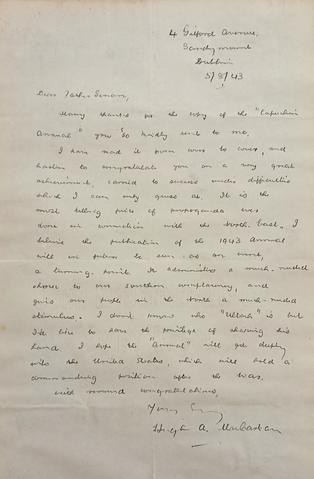 4 Gilford Avenue,
Sandymount
Dublin
5/8/43
Dear Father Senan,
Many thanks for the copy of the "Capuchin
Annual" you so kindly sent to me.
I have read it from cover to cover, and
hasten to congratulate you on a very great
achievement, carried to success under difficulties
which I can only guess at. It is the
most telling piece of propaganda ever
done in connection with the North-East. I
believe the publication of the 1943 Annual
will in future be seen as
a turning point. It administers a much-needed
shock to our southern complacency, and
gives our people in the North a much-needed
stimulus. I don't know who "Ultach" is but
I'd like to have the privilege of shaking his
hand. I hope the "Annual" will get deeply
into the United States, which will hold a
commanding position after the war.
With renewed congratulations,
Yours
Hugh A. MacCartan